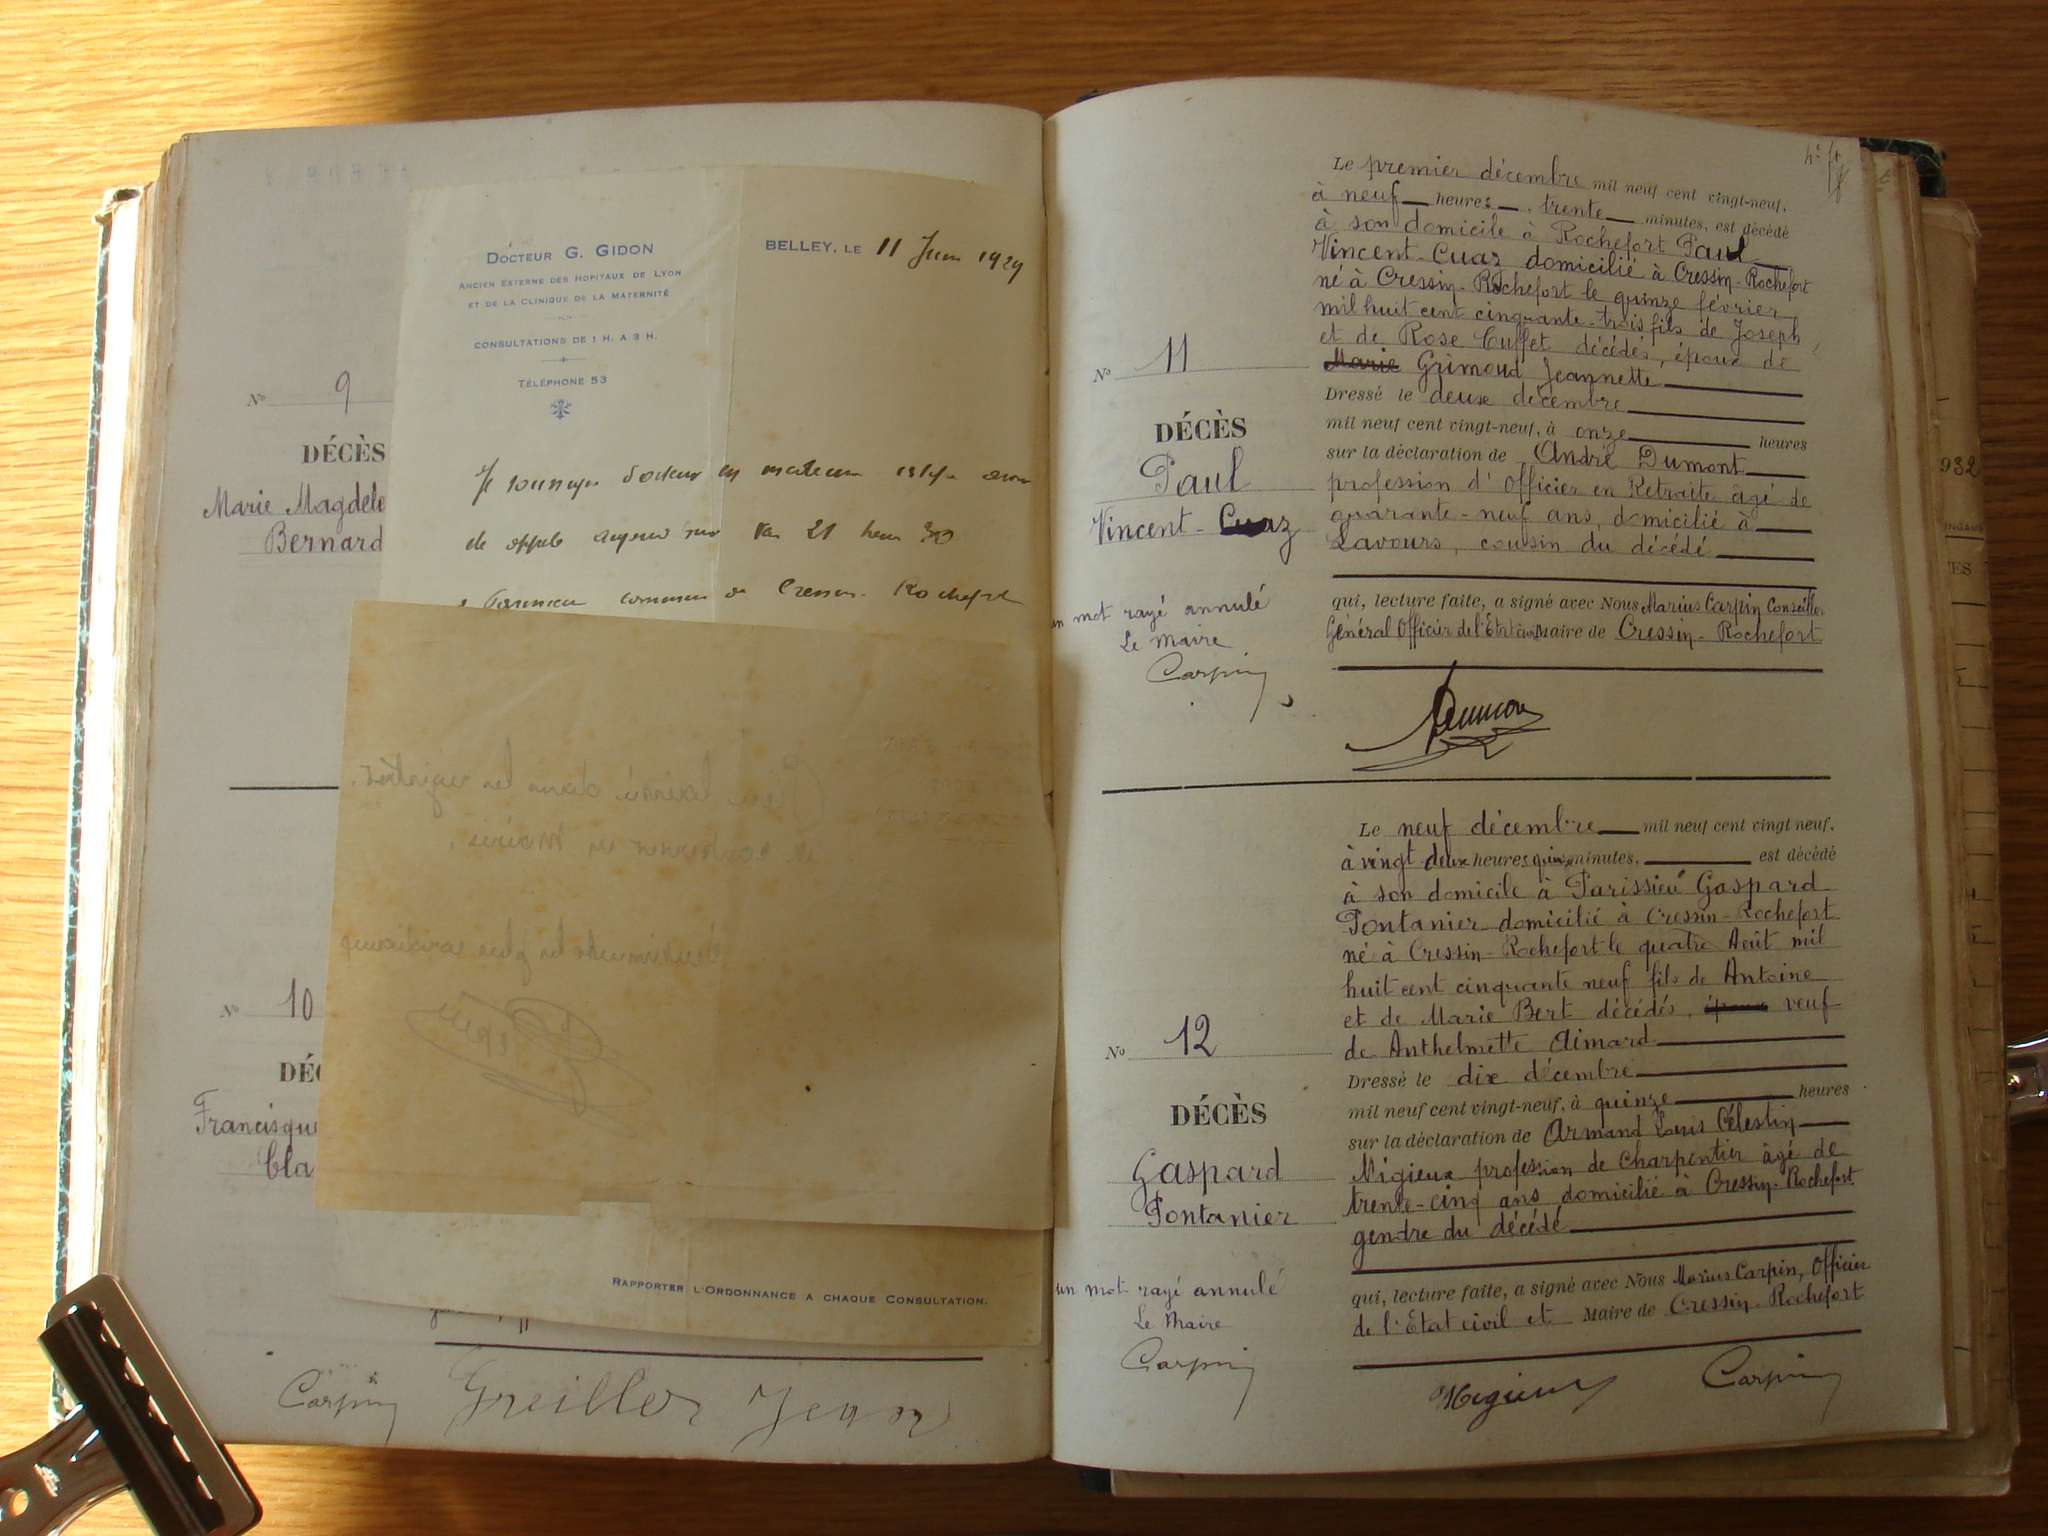 No 9
DÉCÈS
Marie Magdele
Bernard
No 10
DÉC
Francisque
Cla
DOCTEUR G. GIDON
ANCIEN EXTERNE DES HOPITAUX DE LYON
ET DE LA CLINIQUE DE LA MATERNITÉ
CONSULTATIONS DE 1 H. A 3 H.
TÉLÉPHONE 53
BELLEY, LE 11 Juin 1929
Je soussigné Docteur en médecine certifie avoir
été appelé aujourd'hui vers 21 heures 30
commune de Cressin-Rochefort
RAPPORTER L'ORDONNANCE A CHAQUE CONSULTATION.
Carpin Greiller Jean
No 11
DÉCÈS
Paul
Vincent-Cuaz
un mot rayé annulé
Le Maire
Carpin
Le premier décembre mil neuf cent vingt-neuf,
à neuf heures, trente minutes, est décédé
à son domicile à Rochefort Paul
Vincent-Cuaz domicilié à Cressin-Rochefort
né à Cressin-Rochefort le quinze février
mil huit cent cinquante-trois fils de Joseph
et de Rose Cuffet décédés, époux de
Marie Grimoud Jeannette
Dressé le deux décembre
mil neuf cent vingt-neuf, à onze heures
sur la déclaration de André Dumont
profession d'Officier en Retraite âgé de
quarante-neuf ans, domicilié à
Lavours, cousin du décédé
qui, lecture faite, a signé avec Nous Marius Carpin Conseiller
Général Officier de l'État civil Maire de Cressin-Rochefort
Dumont
No 12
DÉCÈS
Gaspard
Pontanier
un mot rayé annulé
Le Maire
Carpin
Le neuf décembre mil neuf cent vingt neuf,
à vingt-deux heures quinze minutes, est décédé
à son domicile à Parissieu Gaspard
Pontanier domicilié à Cressin-Rochefort
né à Cressin-Rochefort le quatre Août mil
huit cent cinquante neuf fils de Antoine
et de Marie Bert décédés, époux veuf
de Anthelmette Aimard
Dressé le dix décembre
mil neuf cent vingt-neuf, à quinze heures
sur la déclaration de Armand Louis Célestin
Migieux profession de Charpentier âgé de
trente-cinq ans domicilié à Cressin-Rochefort
gendre du décédé
qui, lecture faite, a signé avec Nous Marius Carpin, Officier
de l'État civil et Maire de Cressin-Rochefort
Migieux Carpin
932